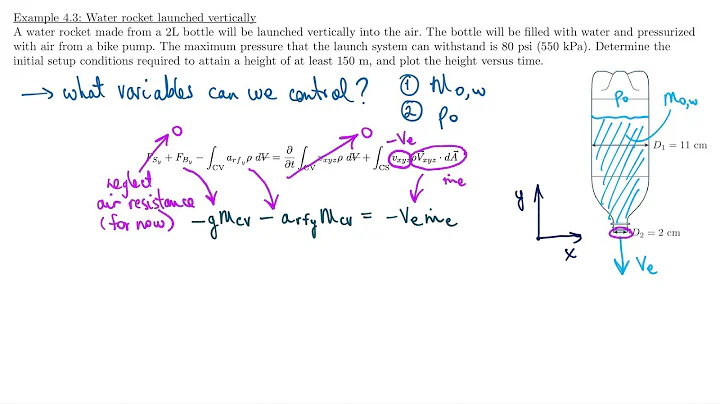 Example 4.3: Water rocket launched vertically
A water rocket made from a 2L bottle will be launched vertically into the air. The bottle will be filled with water and pressurized
with air from a bike pump. The maximum pressure that the launch system can withstand is 80 psi (550 kPa). Determine the
initial setup conditions required to attain a height of at least 150 m, and plot the height versus time.
→ what variables can we control? ① M₀,w
② p₀
p₀
M₀,w
D₁ = 11 cm
0
0
-Ve
F_{S_y} + F_{B_y} − ∫_{CV} a_{rf_y} ρ dV = ∂/∂t ∫_{CV} v_{xyz} ρ dV + ∫_{CS} v_{xyz} ρV⃗_{xyz} · dA⃗
ṁe
neglect
air resistance
(for now)
-gM_{CV} - a_{rfy}M_{CV} = -Veṁe
y
x
D₂ = 2 cm
Ve